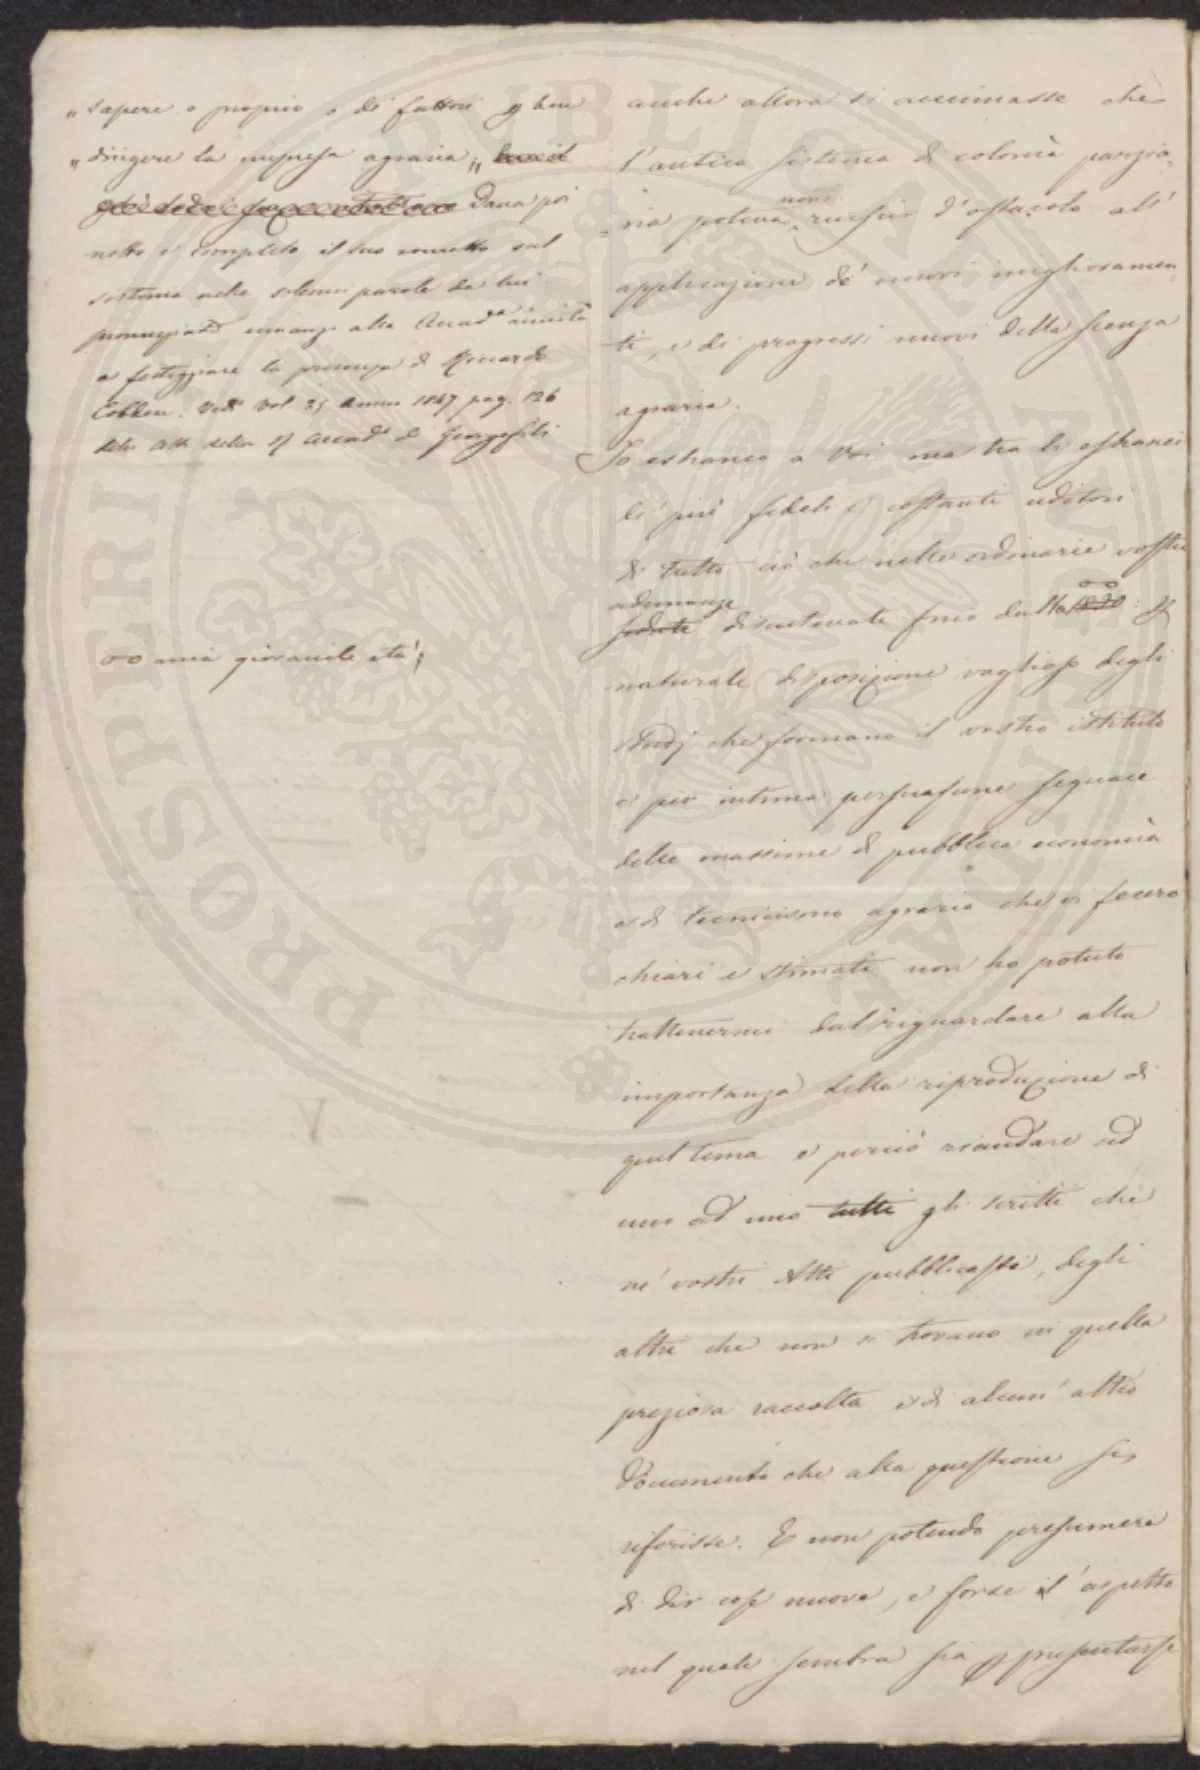 „ sapere o proprio o de' fattori p ben
„ dirigere la impresa agraria „
Dava poi
netto e completo il suo concetto sul
sistema nelle solenni parole da lui
pronunziate innanzi alla Accad.a riunita
a festeggiare la presenza di Riccardo
Cobden. Ved. Vol 25 Anno 1847 pag. 126
delli Atti della Accad.a de Georgofili
oo mia giovanile età;
anche allora si accennasse che
l'antico sistema di colonìa parzia-
ria poteva non riescir d'ostacolo all'
applicazione de' nuovi miglioramen-
ti, e di progressi nuovi della scenza
agraria.
Io estraneo a Voi ma tra li estranei
de' più fedeli e costanti uditori
di tutto ciò che nelle ordinarie vostre
adunanze
sedute discutevate fino dalla 1830 oo : p
naturale disposizione voglioso degli
studj che formano il vostro istituto
e per intima persuasione seguace
delle massime di pubblica economìa
e di tecnicismo agrario che vi fecero
chiari e stimati non ho potuto
trattenermi dal riguardare alla
importanza della riproduzione di
quel tema e perciò riandare ad
uno ad uno tutti gli scritti che
ne' vostri Atti pubblicaste, degli
altri che non si trovano in quella
preziosa raccolta e di alcun' altro
documento che alla questione si
riferisse. E non potendo presumere
di dir cose nuove, e forse l'aspetto
nel quale sembra sia p presentarsi